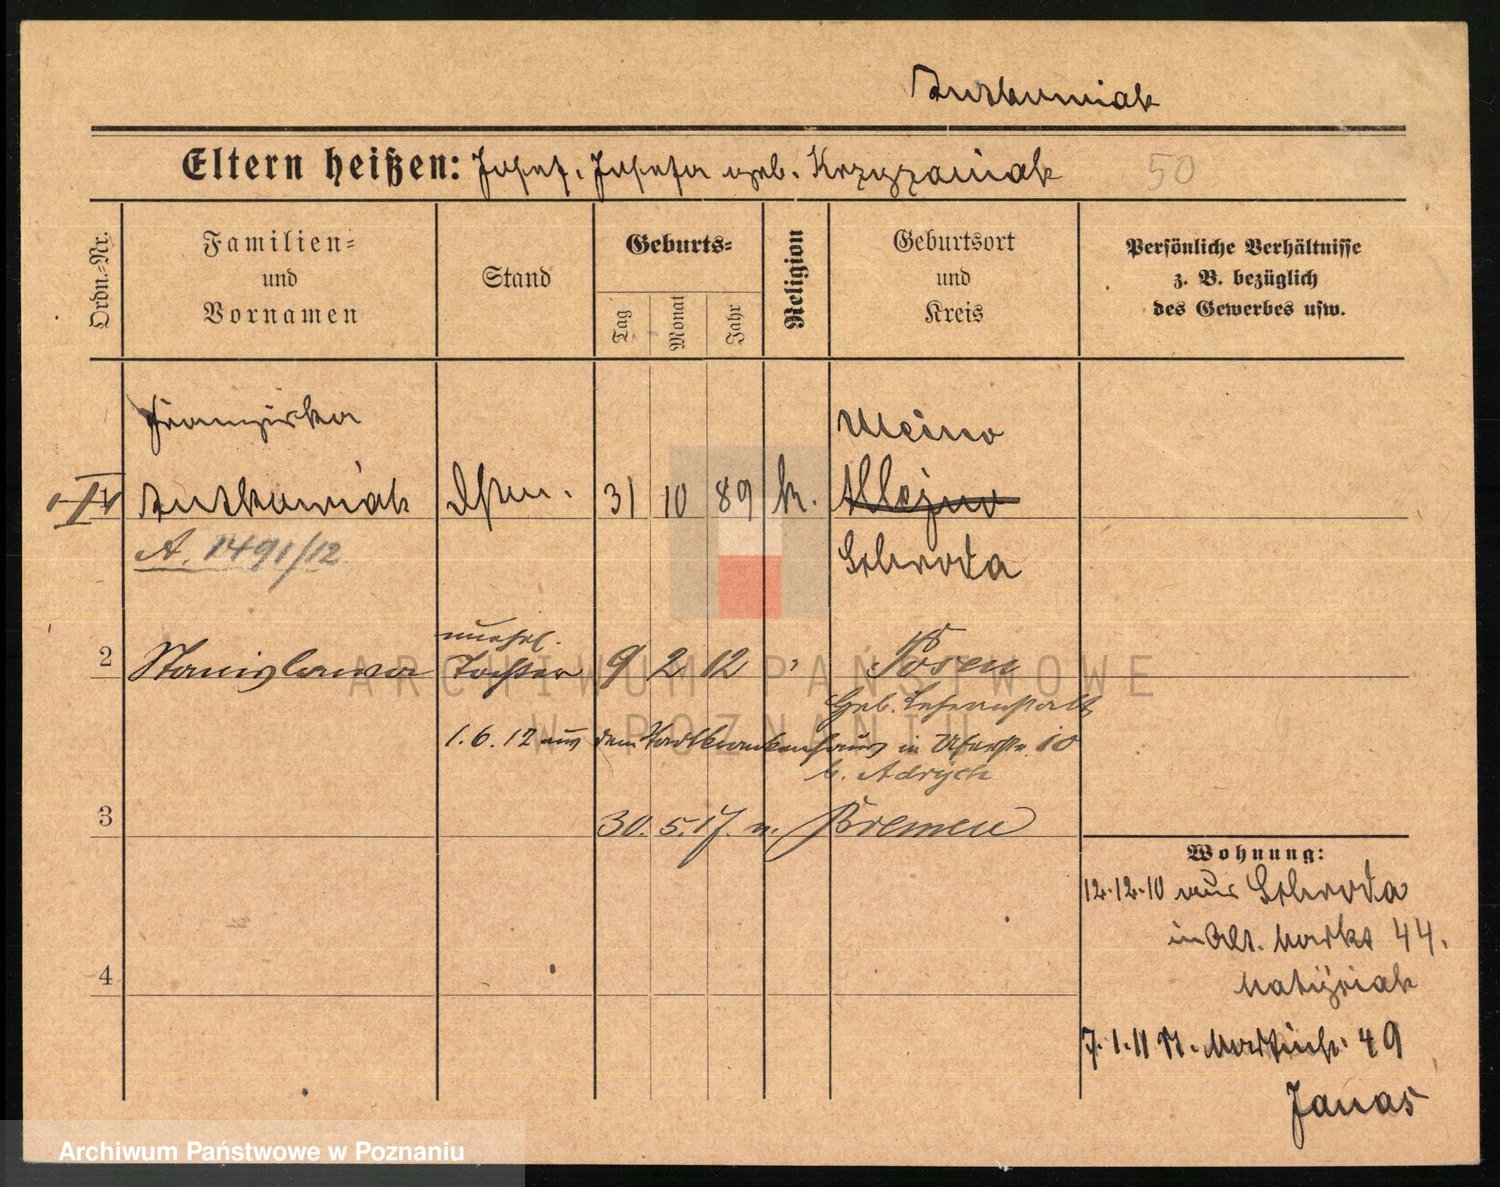 Eltern heißen: Josef, Josefa geb. Krzyzaniak 50
Ordn.-Nr.
Familien-
und
Vornamen
Stand
Geburts-
Tag
Monat
Jahr
Religion
Geburtsort
und
Kreis
Persönliche Verhältnisse
z. B. bezüglich
des Gewerbes usw.
Franziska
31 10 89 k.
Schroda
A. 1491/12
unehel.
2 Stanislawa Tochter 9 2 12 Posen
Geb.
1.6.12 aus dem Stadtkrankenhaus in 10
b. Adrych
3 30. 5. 17. n. Bremen
4
Wohnung:
12.12.10 aus Schroda
in Alt. Markt 44.
Matysiak
7.1.11 St. Martinstr. 49
Janas
ARCHIWUM PAŃSTWOWE
W POZNANIU
Archiwum Państwowe w Poznaniu